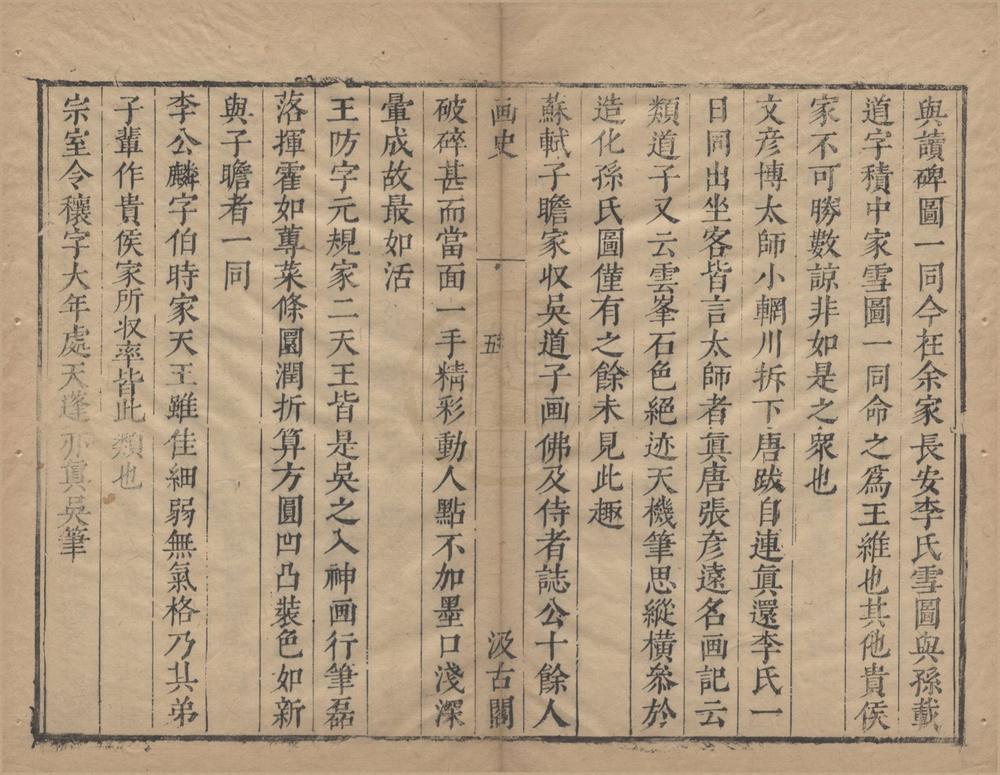 與讀碑圖一同今在余家長安李氏雪圖與孫載
道字積中家雪圖一同命之為王維也其他貴侯
家不可勝數諒非如是之衆也
文彥博太師小輞川拆下唐跋自連真還李氏一
日同出坐客皆言太師者真唐張彥遠名画記云
類道子又云雲峯石色絕迹天機筆思縱橫叅於
造化孫氏圖僅有之餘未見此趣
蘇軾子瞻家収吳道子画佛及侍者誌公十餘人
画史
五
汲古閣
破碎甚而當面一手精彩動人點不加墨口淺深
暈成故最如活
王防字元規家二天王皆是吳之入神画行筆磊
落揮霍如蓴菜條圜潤折算方圓凹凸裝色如新
與子瞻者一同
李公麟字伯時家天王雖佳細弱無氣格乃其弟
子輩作貴侯家所収率皆此類也
宗室令穰字大年處天蓬亦真吳筆